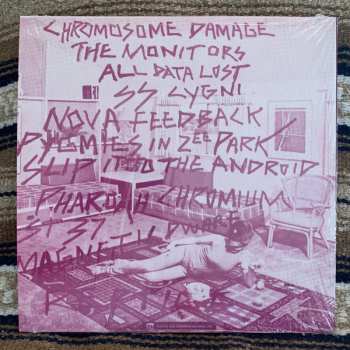 CHROMOSOME DAMAGE
THE MONITORS
ALL DATA LOST
SS CYGNI
NOVA FEEDBACK
PYGMIES IN ZEE PARK
SLIP IT TO THE ANDROID
PHAROAH CHROMIUM
37
MAGNETIC DWARF